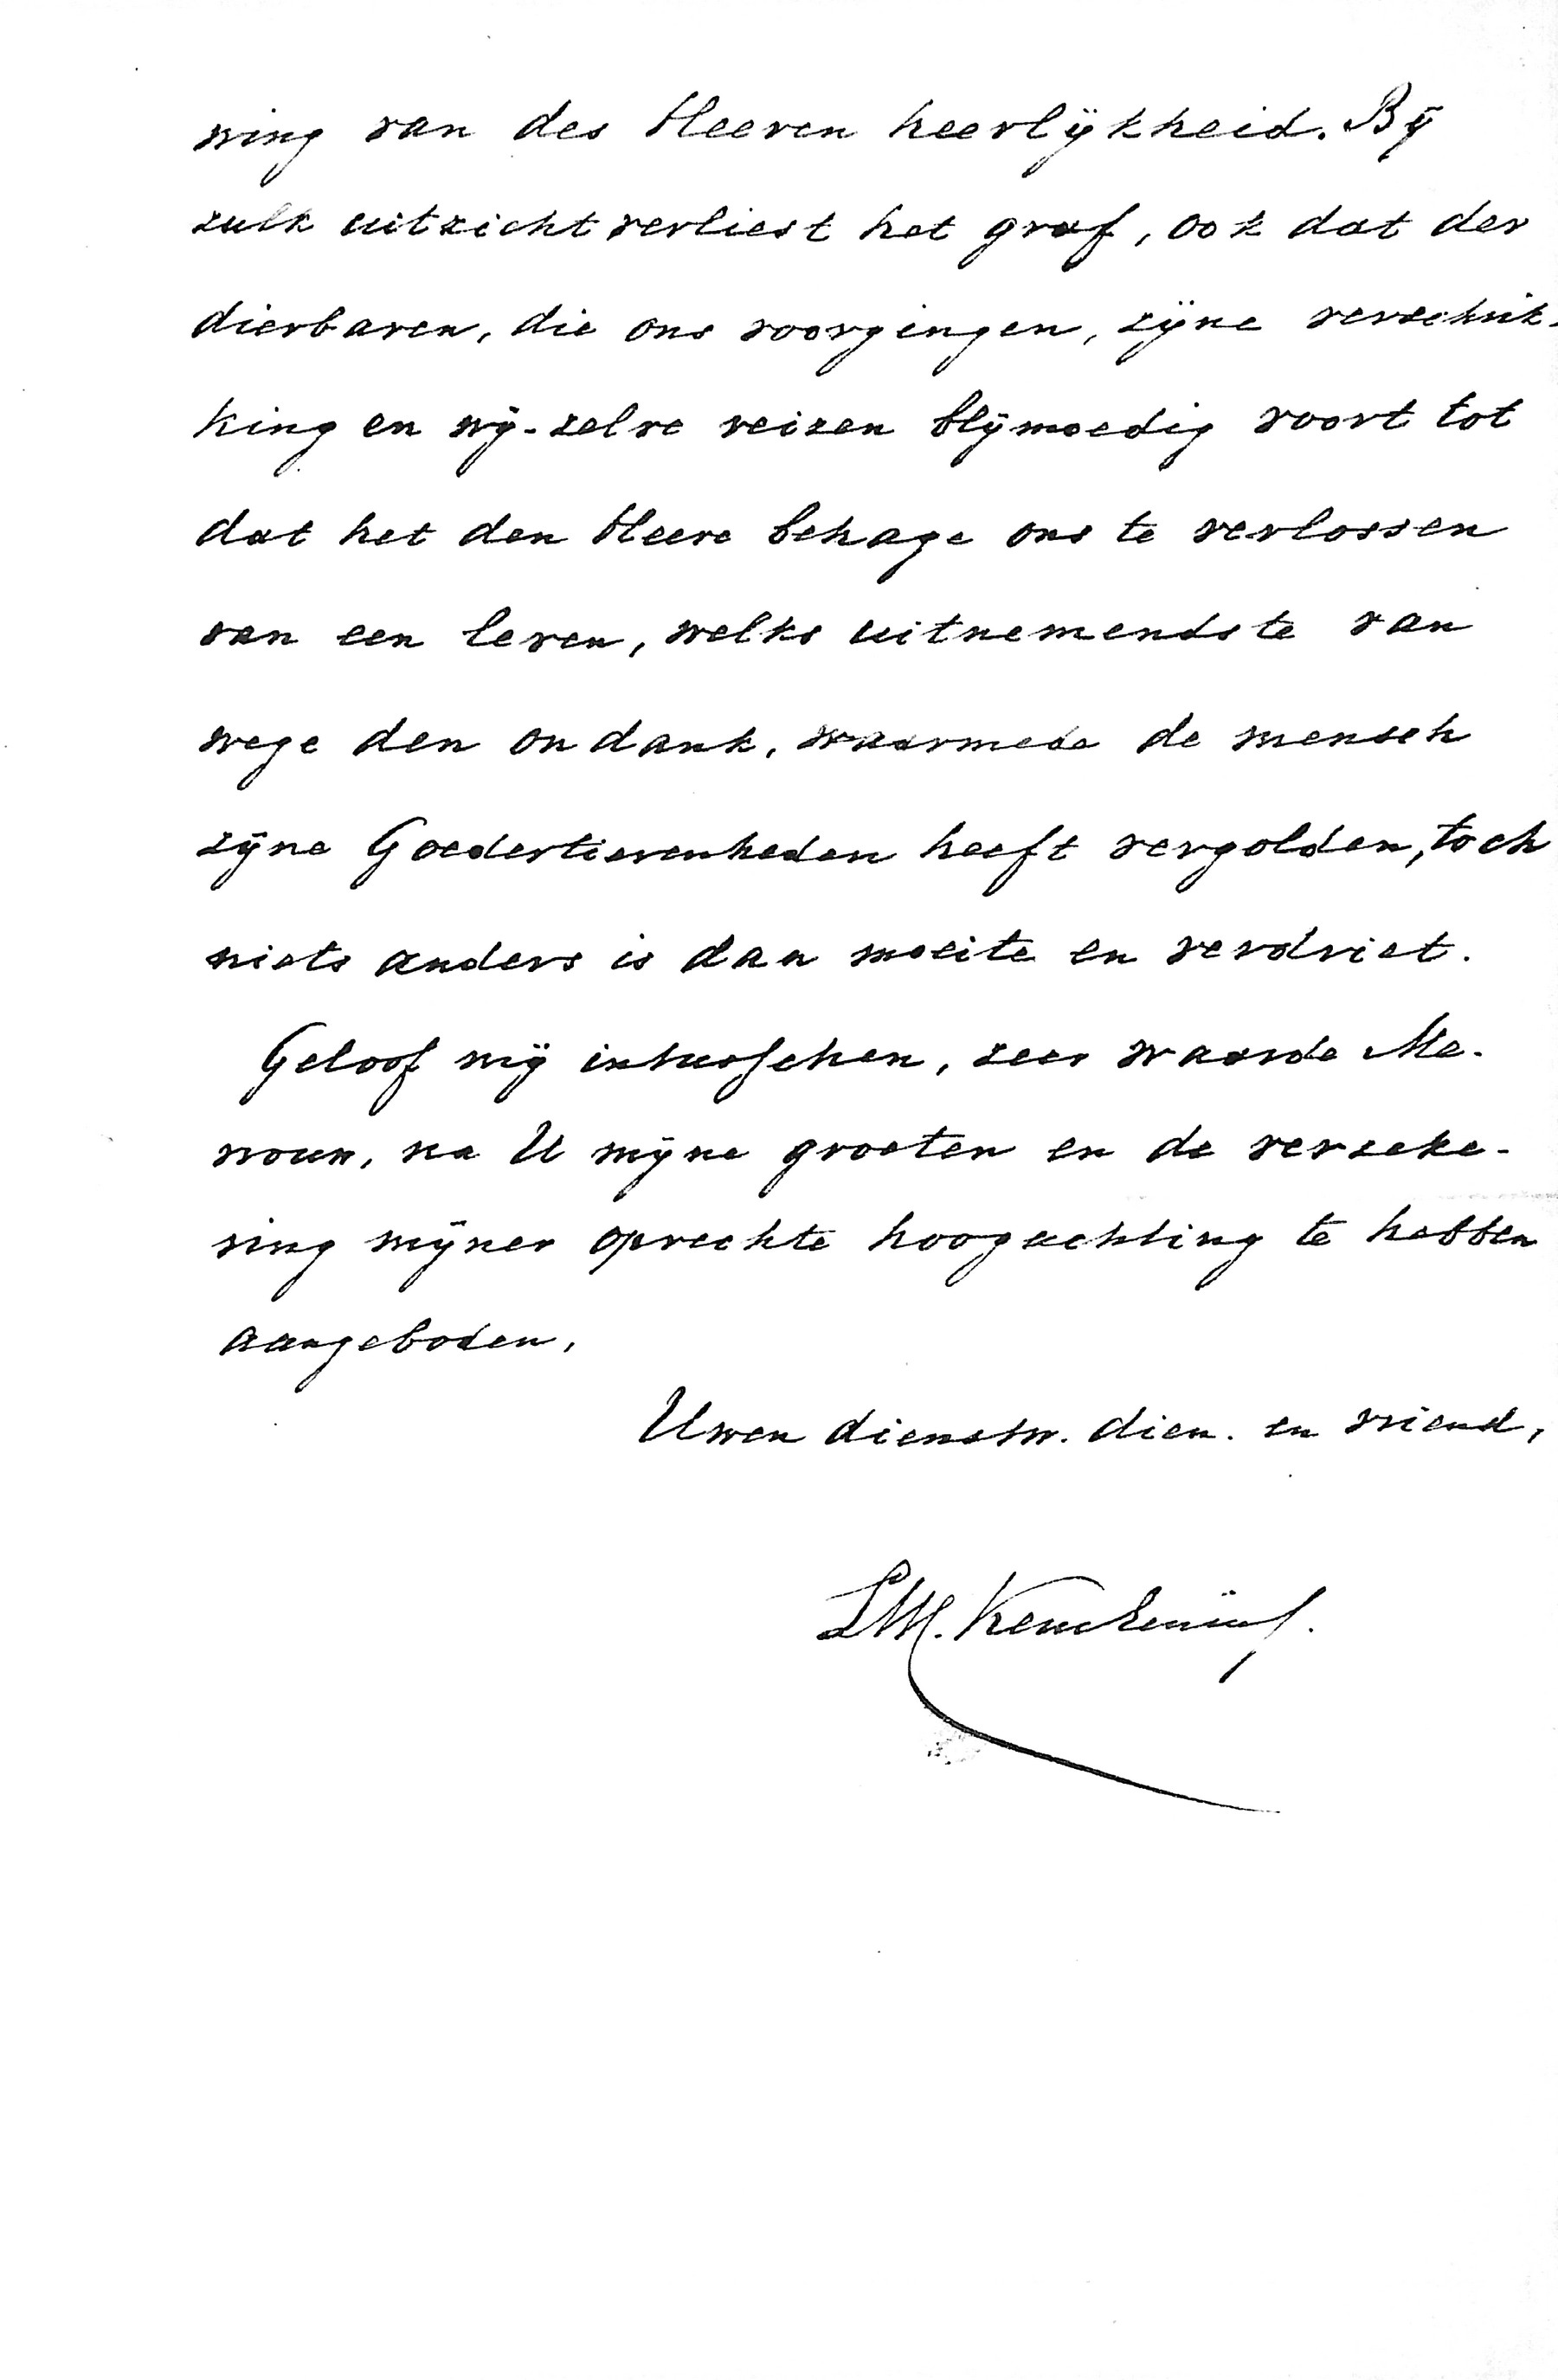 ning van des Heeren heerlijkheid. Bij
zulk uitzicht verliest het graf, ook dat der
dierbaren, die ons voorgingen, zijne verschrik-
king en wij-zelve reizen blijmoedig voort tot
dat het den Heere behage ons te verlossen
van een leven, welks uitnemendste van
wege den ondank, waarmede de mensch
zijne Goedertierenheden heeft vergolden, toch
niets anders is dan moeite en verdriet.
Geloof mij intusschen, zeer waarde Me-
vrouw, na U mijne groeten en de verzeke-
ring mijner oprechte hoogachting te hebben
aangeboden,
Uwen dienstw. dien. en vriend,